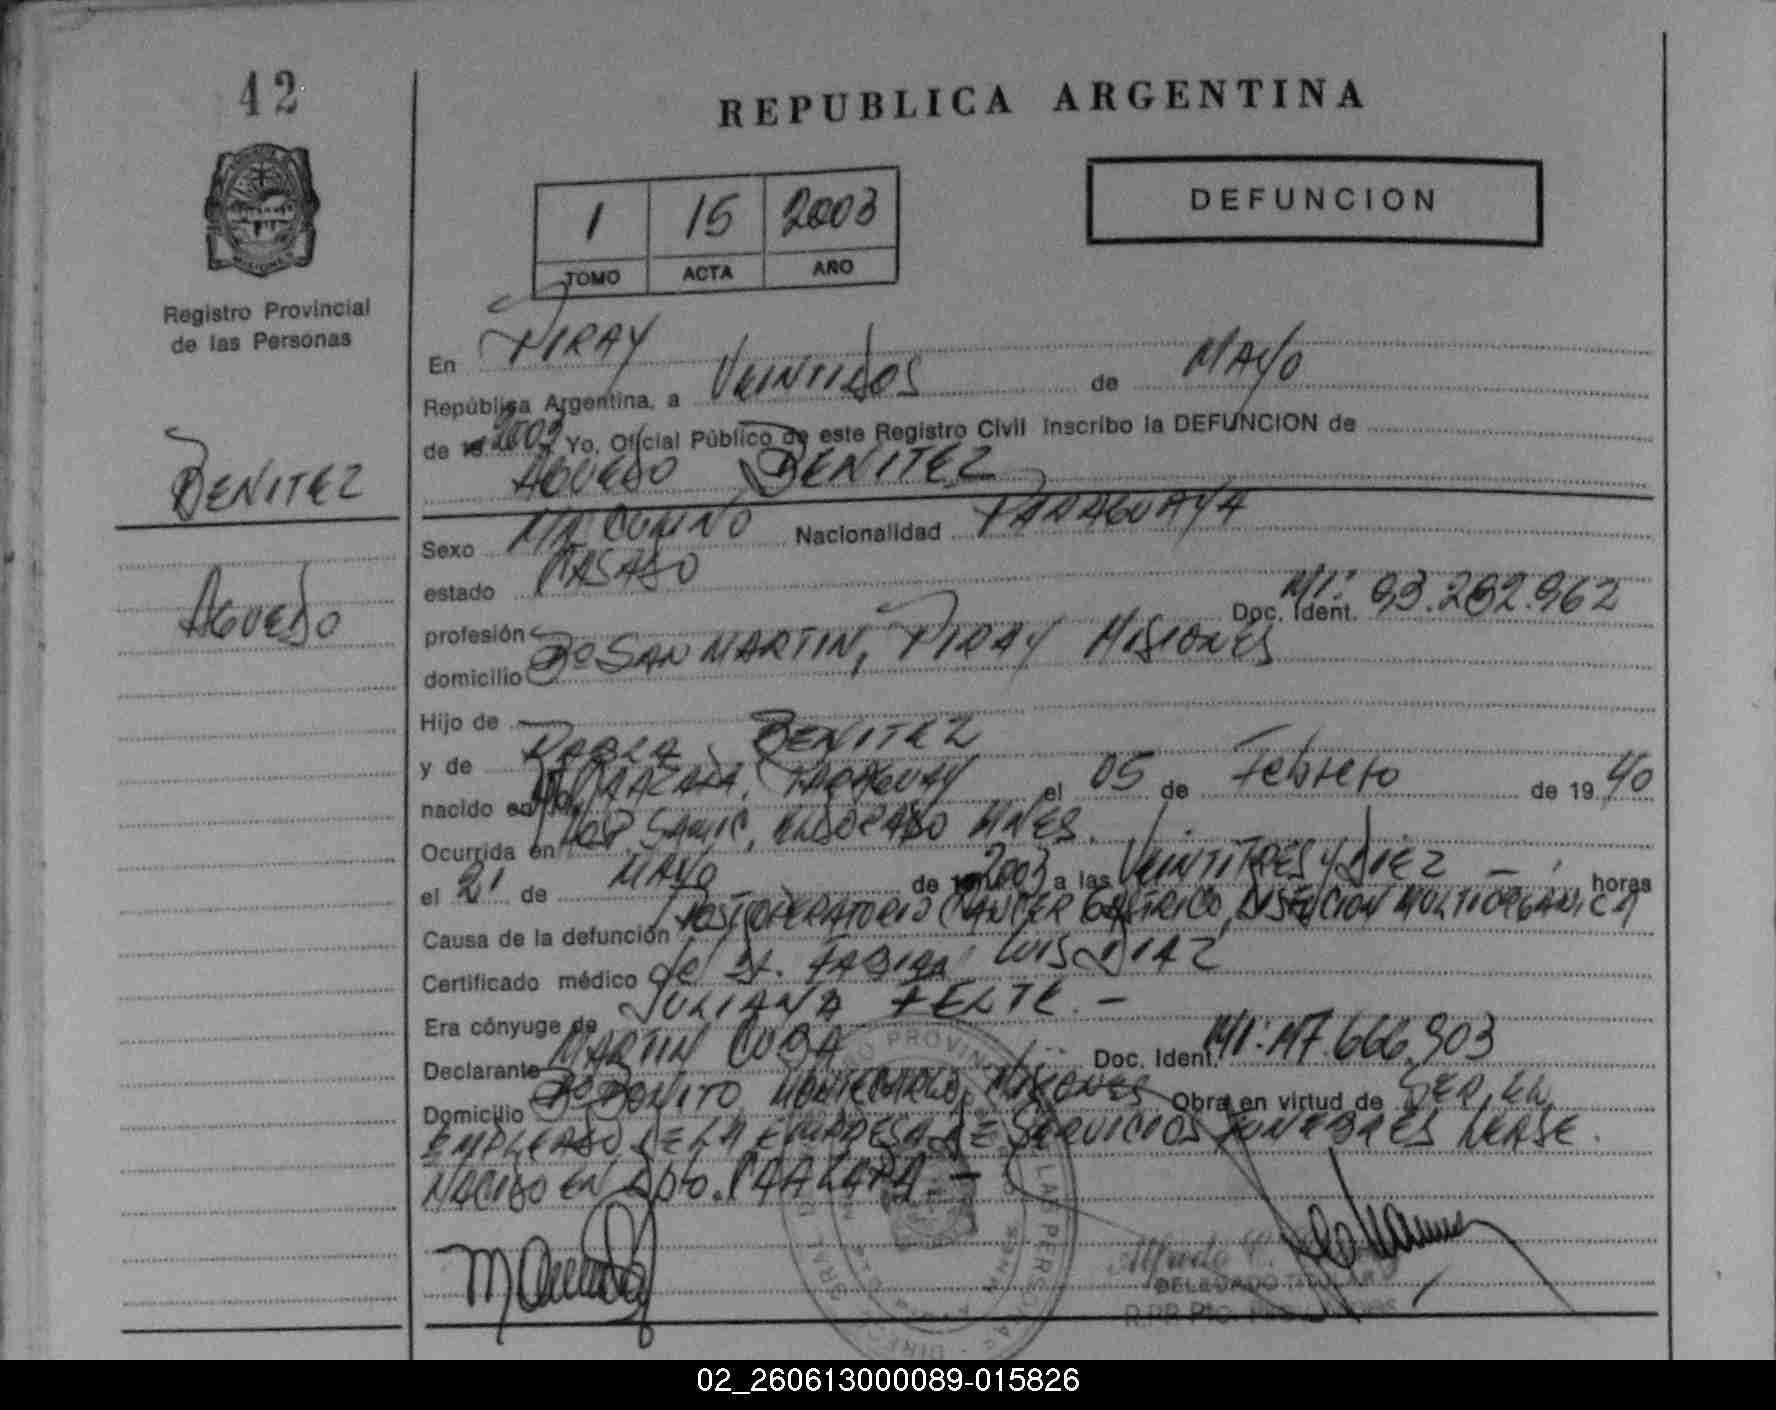 42
REPUBLICA ARGENTINA
DEFUNCION
1 15 2003
TOMO ACTA AÑO
MISIONES
Registro Provincial
de las Personas
BENITEZ
AGUEDO
En PIRAY
República Argentina, a VEINTIDOS de MAYO
de 19 2003 Yo, Oficial Público de este Registro Civil inscribo la DEFUNCION de
AGUEDO BENITEZ
Sexo MASCULINO Nacionalidad PARAGUAYA
estado CASADO
profesión Doc. Ident. MI: 93.282.962
domicilio Bº SAN MARTIN, PIRAY MISIONES
Hijo de
y de PABLA BENITEZ
nacido en PARAGUAY el 05 de Febrero de 1940
Ocurrida en HOSP. SAMIC, ELDORADO MNES.
el 21 de MAYO de 19 2003 a las VEINTITRES Y DIEZ horas
Causa de la defunción POSTOPERATORIO CANCER GASTRICO, DISFUCION MULTIORGANICA
Certificado médico de Dr. FABIAN LUIS DIAZ
Era cónyuge de JULIANA FELTE.-
Declarante MARTIN CUBA Doc. Ident. MI: 17.666.903
Domicilio Bº BONITO MONTECARLO, MISIONES Obra en virtud de SER EL
EMPLEADO DE LA EMPRESA DE SERVICIOS FUNEBRES LEASE.
NACIDO EN Dpto. CAAZAPA.-
DELEGADO TITULAR
02_260613000089-015826